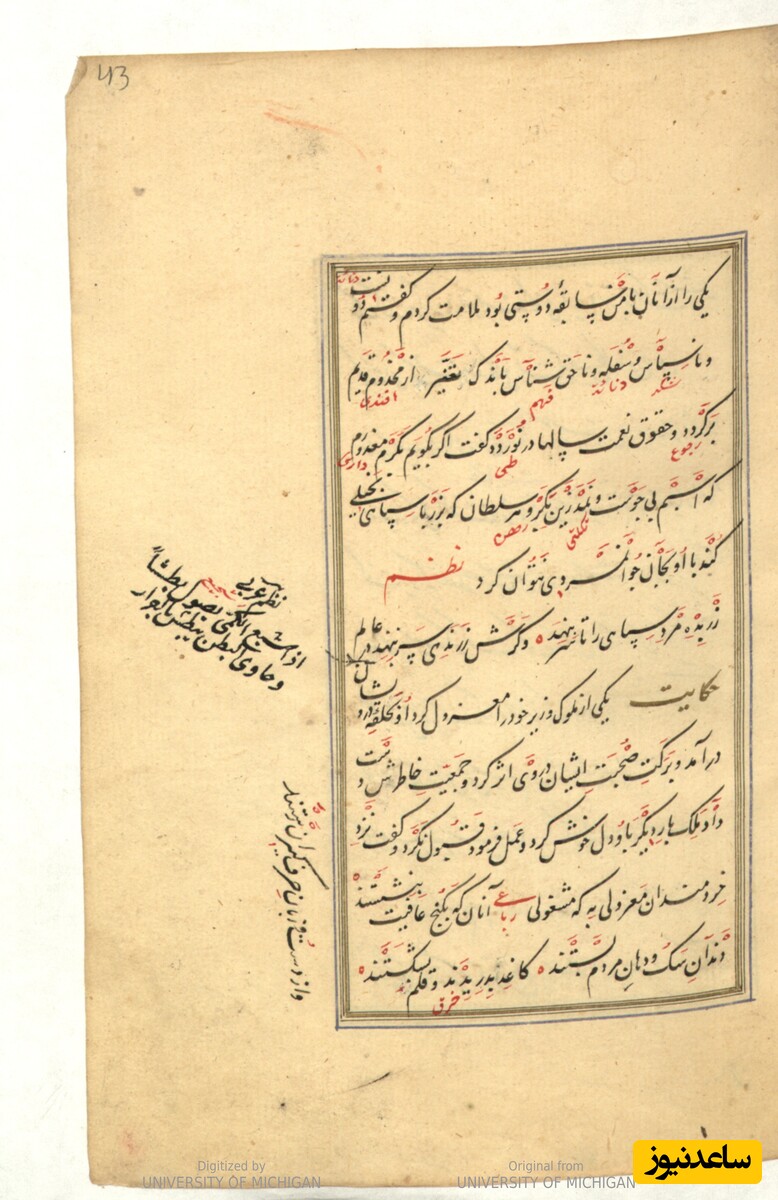 43
یکی را از آنان با من سابقه دوستی بود ملامت کردم و گفتم دون است
و ناسپاس و سفله و ناحق شناس که باندک تغیر از مخدوم قدیم
برگردد و حقوق نعمت سالها در نوردد گفت اگر بگویم بکرم معذورم داری
که اسبم بی جو است و نمدزین بگرو سلطان که بزر با سپاهی بخیلی
کند با او بجان جوانمردی نتوان کرد نظم
زر بده مرد سپاهی را تا سر بنهد و گرش زر ندهی سر بنهد در عالم
حکایت یکی از ملوک وزیر خود را معزول کرد او بحلقه درویشان
درآمد و برکت صحبت ایشان در وی اثر کرد و جمعیت خاطرش دست
داد ملک بار دیگر با او دل خوش کرد و عمل فرمود قبول نکرد و گفت نزد
خردمندان معزولی به که مشغولی رباعی آنان که بکنج عافیت بنشستند
دندان سگ و دهان مردم بستند کاغذ بدریدند و قلم بشکستند
نظم عربی
اذا شبع الکمی یصول بطشا
و خاوی البطن یبطش بالفرار
واز دست و زبان حرف گیران رستند
Digitized by
UNIVERSITY OF MICHIGAN
Original from
UNIVERSITY OF MICHIGAN
ساعدنیوز